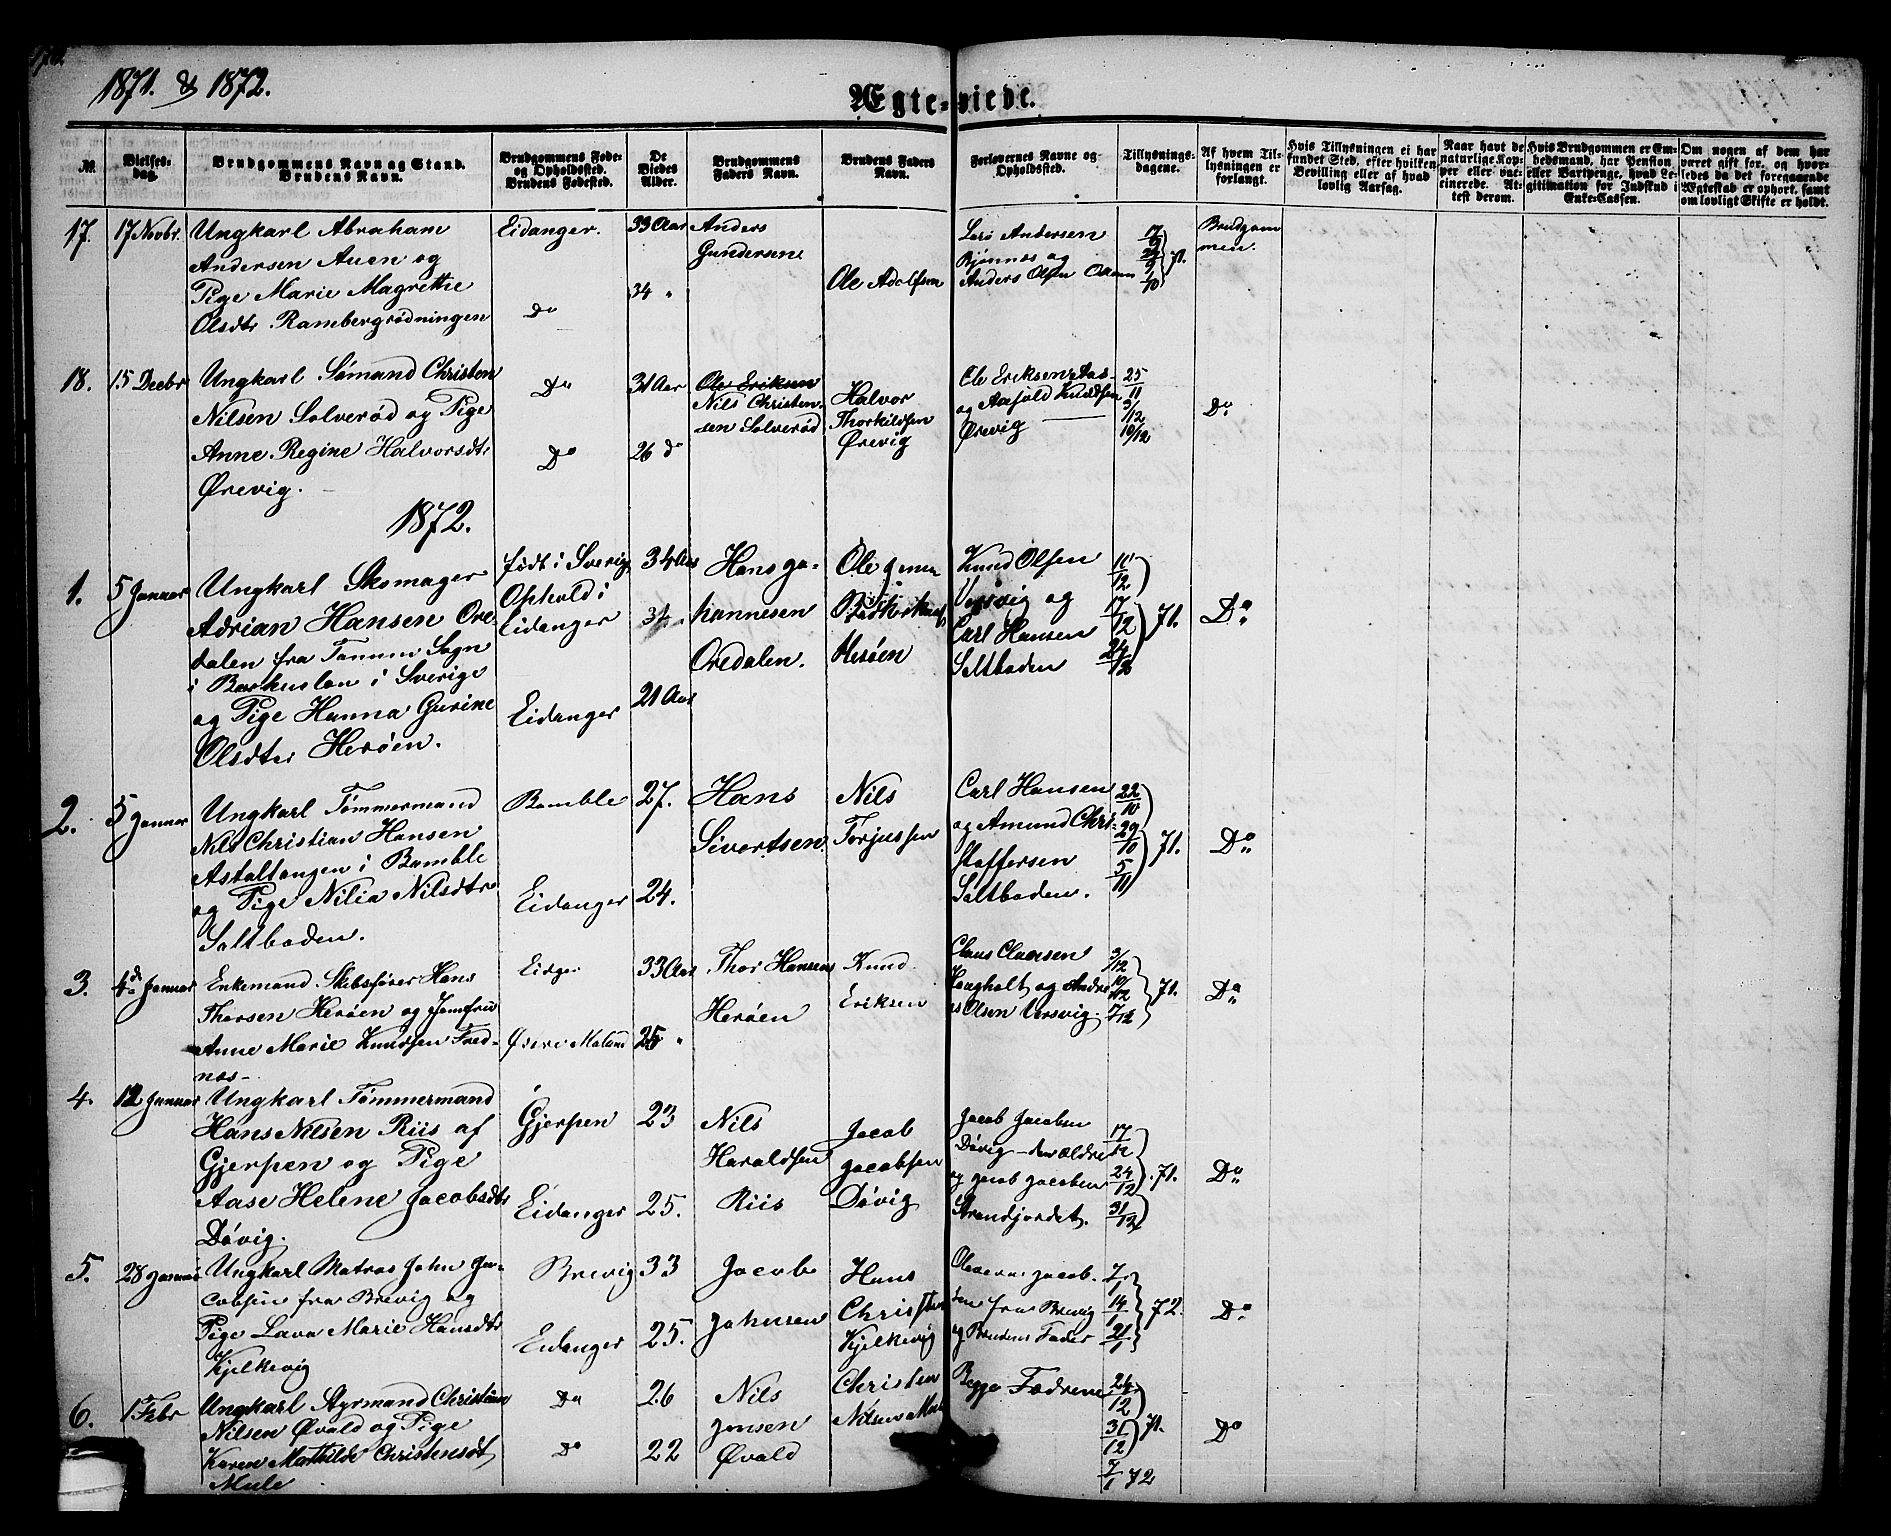 1871. & 1872.
Ægte-viede.
No.
Vielses-
dag.
Brudgommens Navn og Stand.
Brudens Navn.
Brudgommens Føde-
og Opholdssted.
Brudens Fødested.
De
Viedes
Alder.
Brudgommens
Faders Navn.
Brudens Faders
Navn.
Forlovernes Navne og
Opholdssted.
Tillysnings-
dagene.
Af hvem Til-
lysningen er
forlangt.
Hvis Tillysningen ei har
fundet Sted, efter hvilken
Bevilling eller af hvad
lovlig Aarsag.
Naar havt de
naturlige Kop-
per eller vac-
cinerede. At-
test derom.
Hvis Brudgommen er Em-
bedsmand, har Pension
eller Vartpenge, hvad Le-
gitimation for Indskud i
Enke-Cassen.
Om nogen af dem har
været gift før, og hvor-
ledes da det foregaaende
Ægteskab er ophørt, samt
om lovligt Skifte er holdt.
17.
17 Novbr.
Ungkarl Abraham
Andersen Auen og
Pige Marie Magrethe
Olsdtr. Rambergrødningen
Eidanger.
Do
33 Aar
34 "
Anders
Gundersen
Ole Adolfsen
Lars Andersen
Bjønnæs og
Anders Olsen
17/9
24/9
1/10
71.
Brudgom
men.
18.
15 Decbr
Ungkarl Sømand Christen
Nilsen Solverød og Pige
Anne Regine Halvorsdtr
Ørevig.
Do
Do
31 Aar
26 do
Ole Eriksen
Nils Christen-
sen Solverød
Halvor
Thorkildsen
Ørevig
Ole Eriksen Aas-
og Aasold Knudsen
Ørevig
25/11
3/12
10/12
Do
1872.
1.
5 Januar
Ungkarl Skomager
Adrian Hansen Ore-
dalen fra Tanum Sogn
i Bachuslen i Sverige
og Pige Hanna Gurine
Olsdter Herøen.
født i Sverig
Ophold i
Eidanger
Eidanger
34 Aar
34
21 Aar
Hans Jo-
hannesen
Oredalen.
Ole
Herøen
Knud Olsen
Versvig og
Carl Hansen
Saltboden
10/12
17/12
24/12
71.
Do
2.
5 Januar
Ungkarl Tømmermand
Nils Christian Hansen
Astaltangen i Bamble
og Pige Nilia Nilsdtr
Saltboden.
Bamble
Eidanger
27.
24.
Hans
Sivertsen
Nils
Torjussen
Carl Hansen
og Amund Chri-
stoffersen
Saltboden.
22/10
29/10
5/11
71.
Do
3.
4de Januar
Enkemand Skibsfører Hans
Thorsen Herøen og Jomfru
Anne Marie Knudsen Fred-
næs-
Eidger
Øivre Moland
33 Aar
25 "
Thor Hansens
Herøen
Knud
Eriksen
Claus Clausen
Hougholt og Andre
as Olsen Versvig.
3/12
10/12
7/12
71.
Do
4.
12 Januar
Ungkarl Tømmermand
Hans Nilsen Riis af
Gjerpen og Pige
Aase Helene Jacobsdtr
Døvig.
Gjerpen
Eidanger
23
25.
Nils
Haraldsen
Riis
Jacob
Jacobsen
Døvig
Jacob Jacobsen
Døvig - den ældre
og Jacob Jacobsen
Strandjordet.
17/12
24/12
31/12
71.
Do
5.
28 Januar
Ungkarl Matros John Ja-
cobsen fra Brevig og
Pige Lava Marie Hansdtr
Kjelkevig
Brevig
Eidanger
33
25.
Jacob
Johnsen
Hans
Christen
Kjelkevig
Jacob-
sen fra Brevig
og Brudens Fader
7/1
14/1
21/1
72.
Do
6.
1 Febr
Ungkarl Styrmand Christian
Nilsen Øvald og Pige
Karen Mathilde Christensdt
Mule
Do
Do
26
22
Nils
Jensen
Øvald
Christen
Nilsen Mule
Begge Fædrene
24/12
31/12
71.
7/1 72
Do